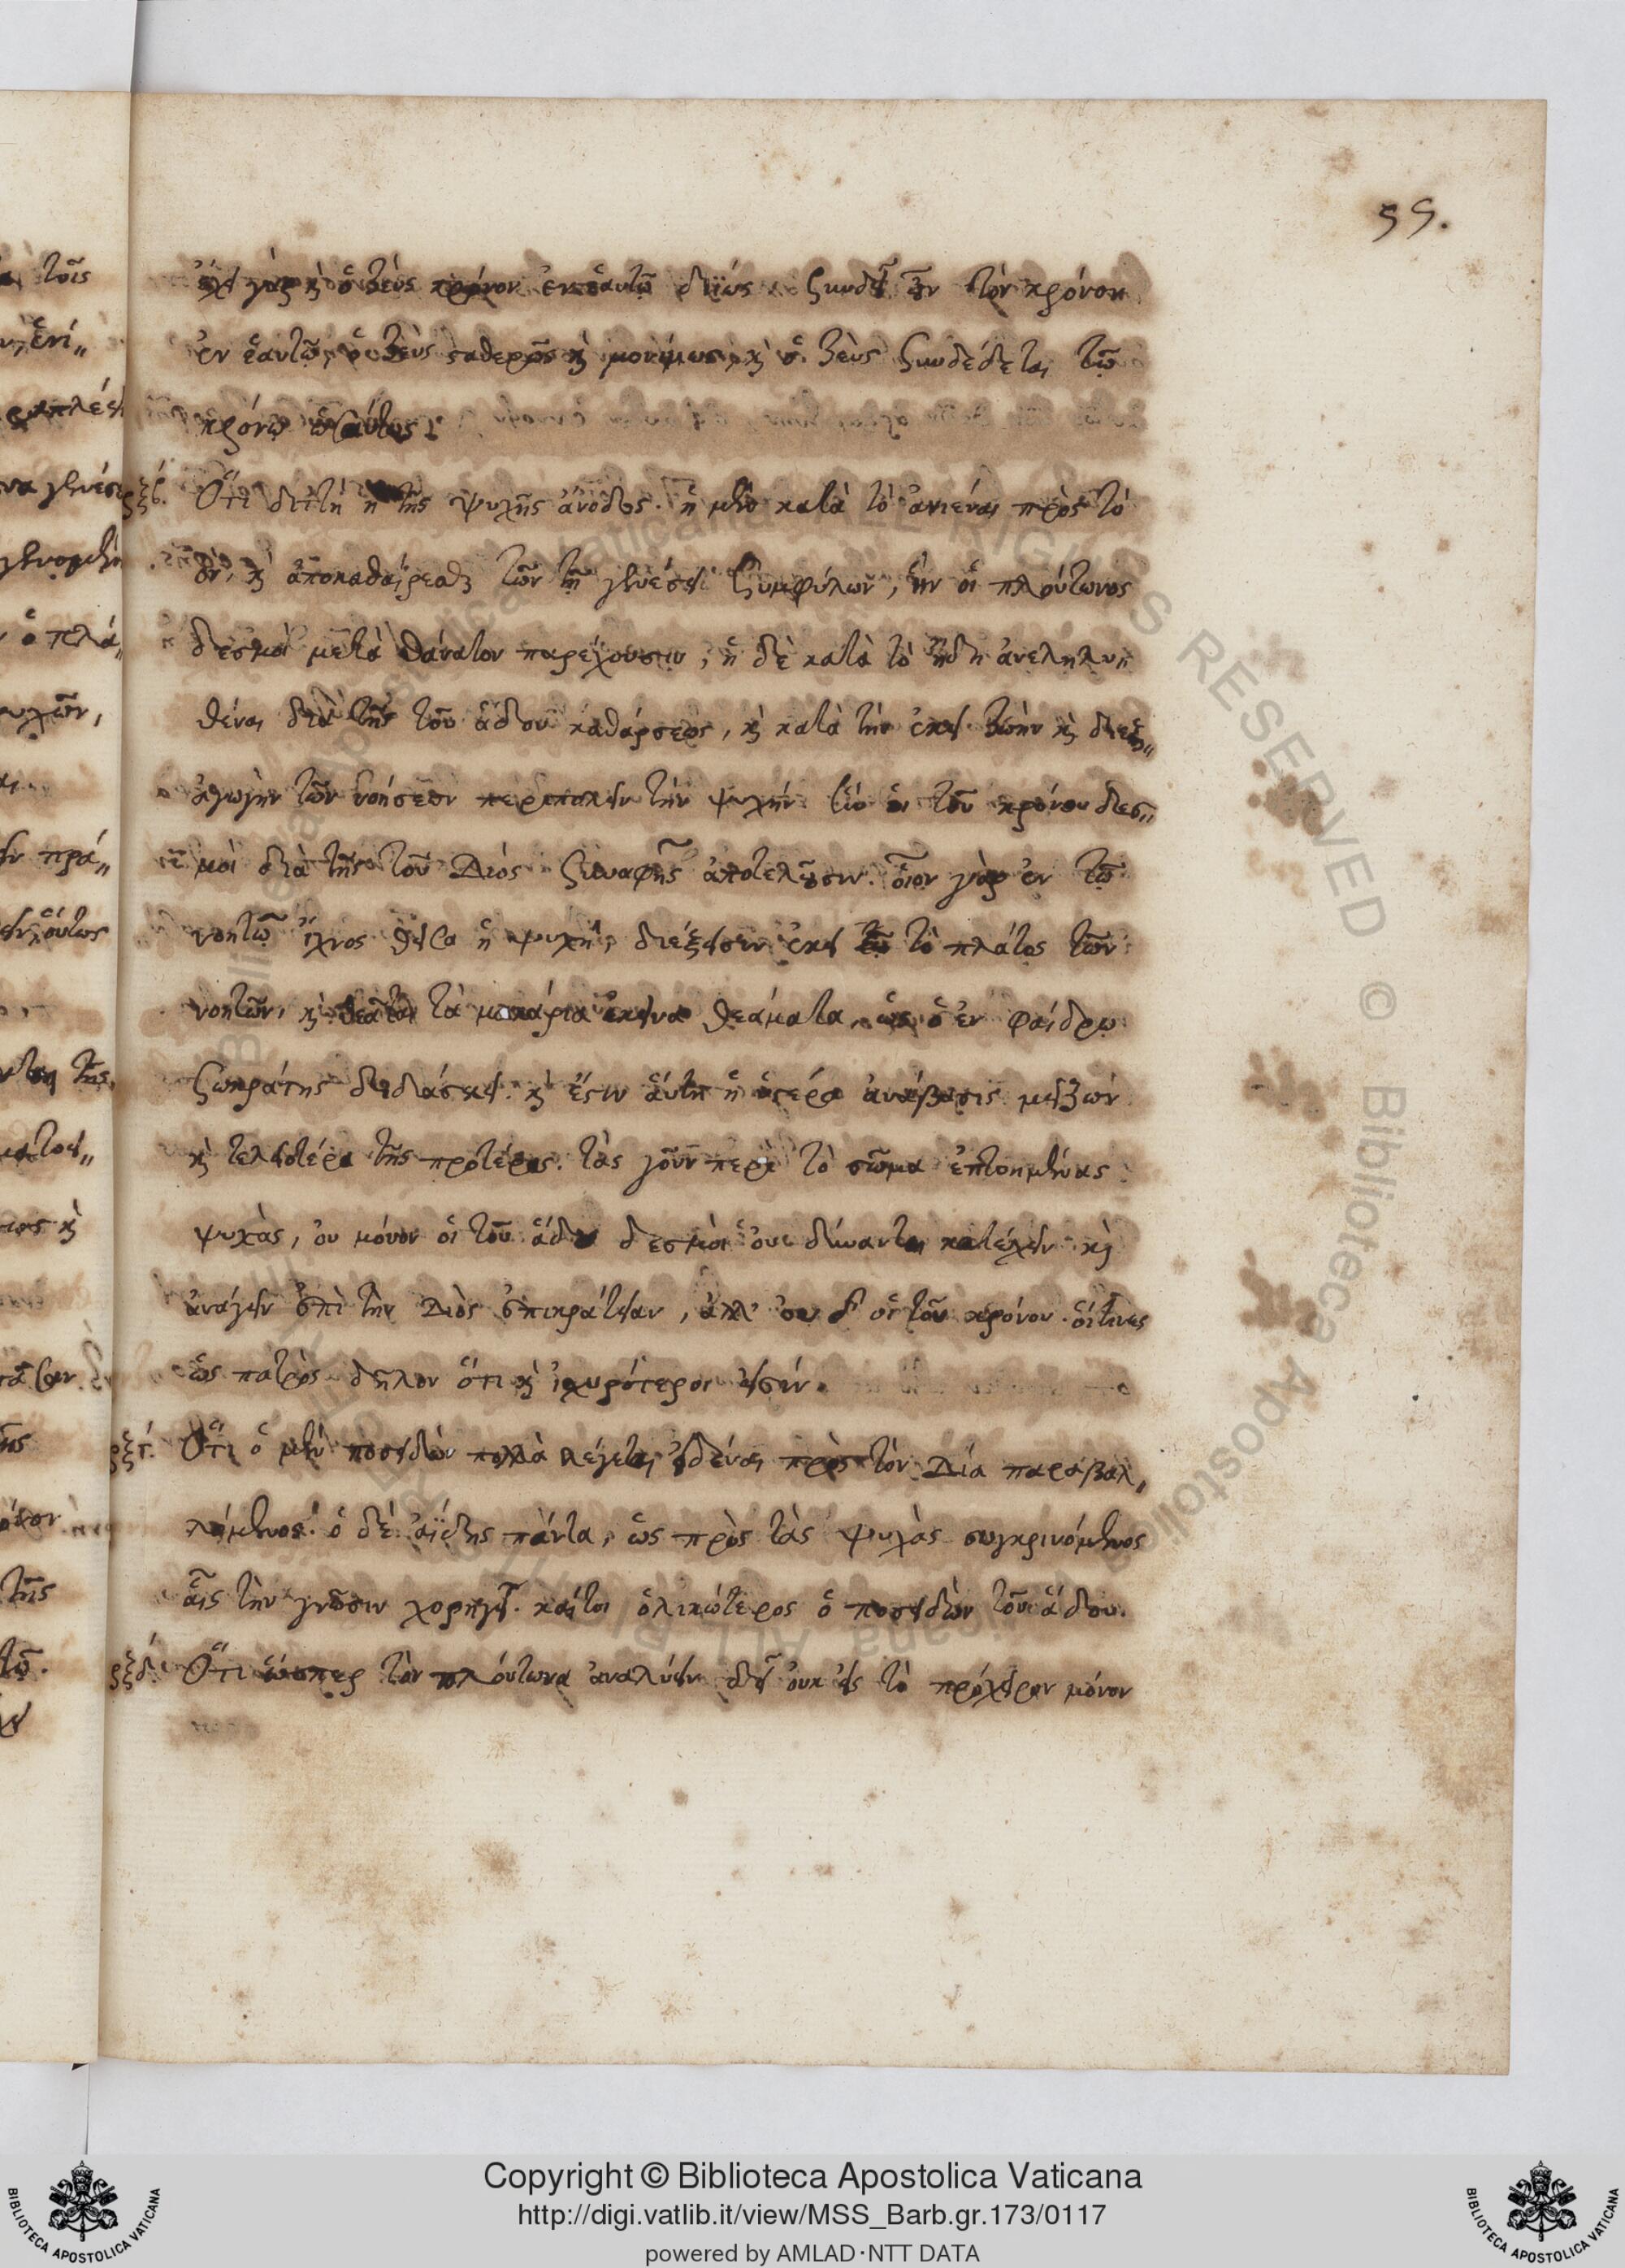 55.
ἔχει γὰρ καὶ ὁ Ζεὺς κρόνον ἐν ἑαυτῷ διίως. ξυνδεῖ οὖν τὸν κρόνον
ἐν ἑαυτῷ, ὁ Ζεὺς σαθερῶς καὶ μονίμως, καὶ ὁ Ζεὺς ξυνδέδεται τῷ
κρόνῳ ὡσαύτως.
ρξβ. Ὅτι διττὴ ἡ τῆς ψυχῆς ἄνοδος. ἡ μὲν κατὰ τὸ ἀνιέναι πρὸς τὸ
ὂν, καὶ ἀποκαθαίρεσθαι τῶν τῇ γενέσει ξυμφύλων, ἣν οἱ πλούτωνος
δεσμοὶ μετὰ θάνατον παρέχουσιν, ἡ δὲ κατὰ τὸ ἤδη ἀνεληλυ„
θέναι διὰ τῆς τοῦ ἅδου καθάρσεως, καὶ κατὰ τὴν ἐκεῖ ζωὴν καὶ διεξ„
αγωγὴν τῶν νοήσεων περιπολεῖν τὴν ψυχήν οἱ τοῦ κρόνου δεσ„
μοὶ διὰ τῆς τοῦ Διὸς ξυναφῆς ἀποτελοῦσιν. οἷον γὰρ ἐν τῷ
νοητῷ ἴχνος θεῖσα ἡ ψυχή, διέξεισιν ἐκεῖ τὸ πλάτος τῶν
νοητῶν, καὶ θεᾶται τὰ μακάρια ἐκεῖνα θεάματα, ὡς ὁ ἐν φαίδρῳ
ζωκράτης διδάσκει. καὶ ἔστιν αὕτη ἡ ὑστέρα ἀνάβασις μείζων
καὶ τελειοτέρα τῆς προτέρας. τὰς γοῦν περὶ τὸ σῶμα ἐπτοημένας
ψυχὰς, ου μόνον οἱ τοῦ ἅδου δεσμοὶ δύνανται κατέχειν καὶ
ἀνάγειν ἐπὶ τὴν Διὸς ἐπικράτειαν, ἀλλ' οἱ τοῦ κρόνου. οἵτινες
ὡς πατρὸς δῆλον ὅτι καὶ ἰσχυρότεροι εἰσίν.
ρξγ. Ὅτι ὁ μὲν ποσειδῶν πολλὰ λέγεται εἰδέναι πρὸς τὸν Δία παραβαλ„
λόμενος. ὁ δὲ ἀΐδης πάντα, ὡς πρὸς τὰς ψυχὰς συγκρινόμενος
αἷς τὴν γνῶσιν χορηγεῖ. καίτοι ὁλικώτερος ὁ ποσειδῶν τοῦ ἅδου.
ρξδ. Ὅτι ὥσπερ τὸν πλούτωνα ἀναλύειν δεῖ ουκ εἰς τὸ πρόχειρον μόνον
Copyright © Biblioteca Apostolica Vaticana
http://digi.vatlib.it/view/MSS_Barb.gr.173/0117
powered by AMLAD·NTT DATA